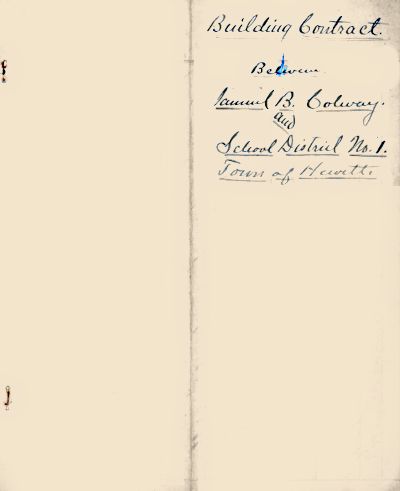 Building Contract.
Between
Samuel B. Colway.
and
School District No. 1.
Town of Hewitt.